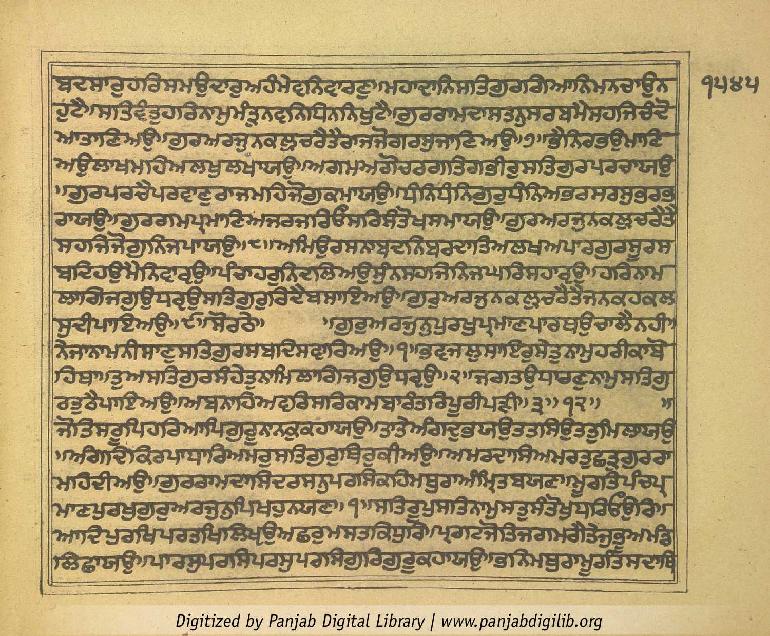 ਬਦਸਾਰੁਹਰਿਸਮਉਦਾਰੁਅਹੰਮੇਵਨਿਵਾਰਣੁ॥ਮਹਾਦਾਨਿਸਤਿਗੁਰਗਿਆਨਿਮਨਚਾਉਨ
ਹੁਟੈ॥ਸਤਿਵੰਤੁਹਰਿਨਾਮੁਮੰਤ੍ਰੁਨਵਨਿਧਿਨਨਿਖੁਟੈ॥ਗੁਰਰਾਮਦਾਸਤਨੁਸਰਬਮੈਸਹਜਿਚੰਦੋ
ਆਤਾਣਿਅਉ॥ਗੁਰਅਰਜੁਨਕਲੁਚਰੈਤੈਰਾਜਜੋਗਰਸੁਜਾਣਿਅਉ॥੭॥ਭੈਨਿਰਭਉਮਾਣਿ
ਅਉਲਾਖਮਹਿਅਲਖੁਲਖਾਯਉ॥ਅਗਮਅਗੋਚਰਗਤਿਗਭੀਰੁਸਤਿਗੁਰਪਰਚਾਯਉ
॥ਗੁਰਪਰਚੈਪਰਵਾਣੁਰਾਜਮਹਿਜੋਗੁਕਮਾਯਉ॥ਧੰਨਿਧੰਨਿਗੁਰੁਧੰਨਿਅਭਰਸਰਸੁਭਰਭ
ਰਾਯਉ॥ਗੁਰਗਮਪ੍ਰਮਾਣਿਅਜਰਜਰਿਓਸਰਿਸੰਤੋਖਸਮਾਯਉ॥ਗੁਰਅਰਜੁਨਕਲੁਚਰੈਤੈ
ਸਹਜਿਜੋਗੁਨਿਜਪਾਯਉ॥੮॥ਅਮਿਉਰਸਨਾਬਦਨਿਬਰਦਾਤਿਅਲਖਅਪਾਰਗੁਰਸੂਰਸ
ਬਦਿਹਉਮੈਨਿਵਾਰ੍ਯਉ॥ਪੰਚਾਹਰੁਨਿਦਲਿਅਉਸੁੰਨਸਹਜਿਨਿਜਘਰਿਸਹਾਰ੍ਯਉ॥ਹਰਿਨਾਮ
ਲਾਗਿਜਗੁਉਧਰ੍ਯਉਸਤਿਗੁਰੁਰਿਦੈਬਸਾਇਅਉ॥ਗੁਰੁਅਰਜੁਨਕਲੁਚਰੈਤੈਜਨਕਹਕਲ
ਸੁਦੀਪਾਇਅਉ॥੯॥ਸੋਰਠੇ॥ ॥ਗੁਰੁਅਰਜੁਨੁਪੁਰਖੁਪ੍ਰਮਾਣਪਾਰਥਉਚਾਲੈਨਹੀ॥
ਨੇਜਾਨਾਮਨੀਸਾਣੁਸਤਿਗੁਰਸਬਦਿਸਵਾਰਿਅਉ॥੧॥ਭਵਜਲੁਸਾਇਰੁਸੇਤੁਨਾਮੁਹਰੀਕਾਬੋ
ਹਿਥਾ॥ਤੁਅਸਤਿਗੁਰਸੰਹੇਤੁਨਾਮਿਲਾਗਿਜਗੁਉਧਰ੍ਯਉ॥੨॥ਜਗਤਉਧਾਰਣੁਨਾਮੁਸਤਿਗੁ
ਰਤੁਠੈਪਾਇਅਉ॥ਅਬਨਾਹਿਅਵਰਿਸਰਿਕਾਮਬਾਰੰਤਰਿਪੂਰੀਪੜੀ॥੩॥੧੨॥ ॥
ਜੋਤਿਸਰੂਪਿਹਰਿਆਪਿਗੁਰੂਨਾਨਕੁਕਹਾਯਉ॥ਤਾਤੇਅੰਗਦੁਭਯਉਤਤਸਿਉਤਤੁਮਿਲਾਯਉ
॥ਅੰਗਦਿਕਿਰਪਾਧਾਰਿਅਮਰੁਸਤਿਗੁਰੁਥਿਰੁਕੀਅਉ॥ਅਮਰਦਾਸਿਅਮਰਤੁਛਤ੍ਰੁਗੁਰਰਾ
ਮਹਿਦੀਅਉ॥ਗੁਰਰਾਮਦਾਸਿਦਰਸਨੁਪਰਸਿਕਹਿਮਥੁਰਾਅੰਮ੍ਰਿਤਬਯਣ॥ਮੂਰਤਿਪੰਚਪ੍ਰ
ਮਾਣਪੁਰਖੁਗੁਰੁਅਰਜੁਨੁਪਿਖਹੁਨਯਣ॥੧॥ਸਤਿਰੂਪੁਸਤਿਨਾਮੁਸਤੁਸੰਤੋਖੁਧਰਿਓਉਰਿ॥
ਆਦਿਪੁਰਖਿਪਰਤਖਿਲਿਖ੍ਯਉਅਛਰੁਮਸਤਕਿਧੁਰਿ॥ਪ੍ਰਗਟਜੋਤਿਜਗਮਗੈਤੇਜੁਭੂਅਮੰਡ
ਲਿਛਾਯਉ॥ਪਾਰਸੁਪਰਸਿਪਰਸੁਪਰਸਿਗੁਰਿਗੁਰੂਕਹਾਯਉ॥ਭਨਿਮਥੁਰਾਮੂਰਤਿਸਦਾਥਿ
੧੫੪੫
Digitized by Panjab Digital Library | www.panjabdigilib.org